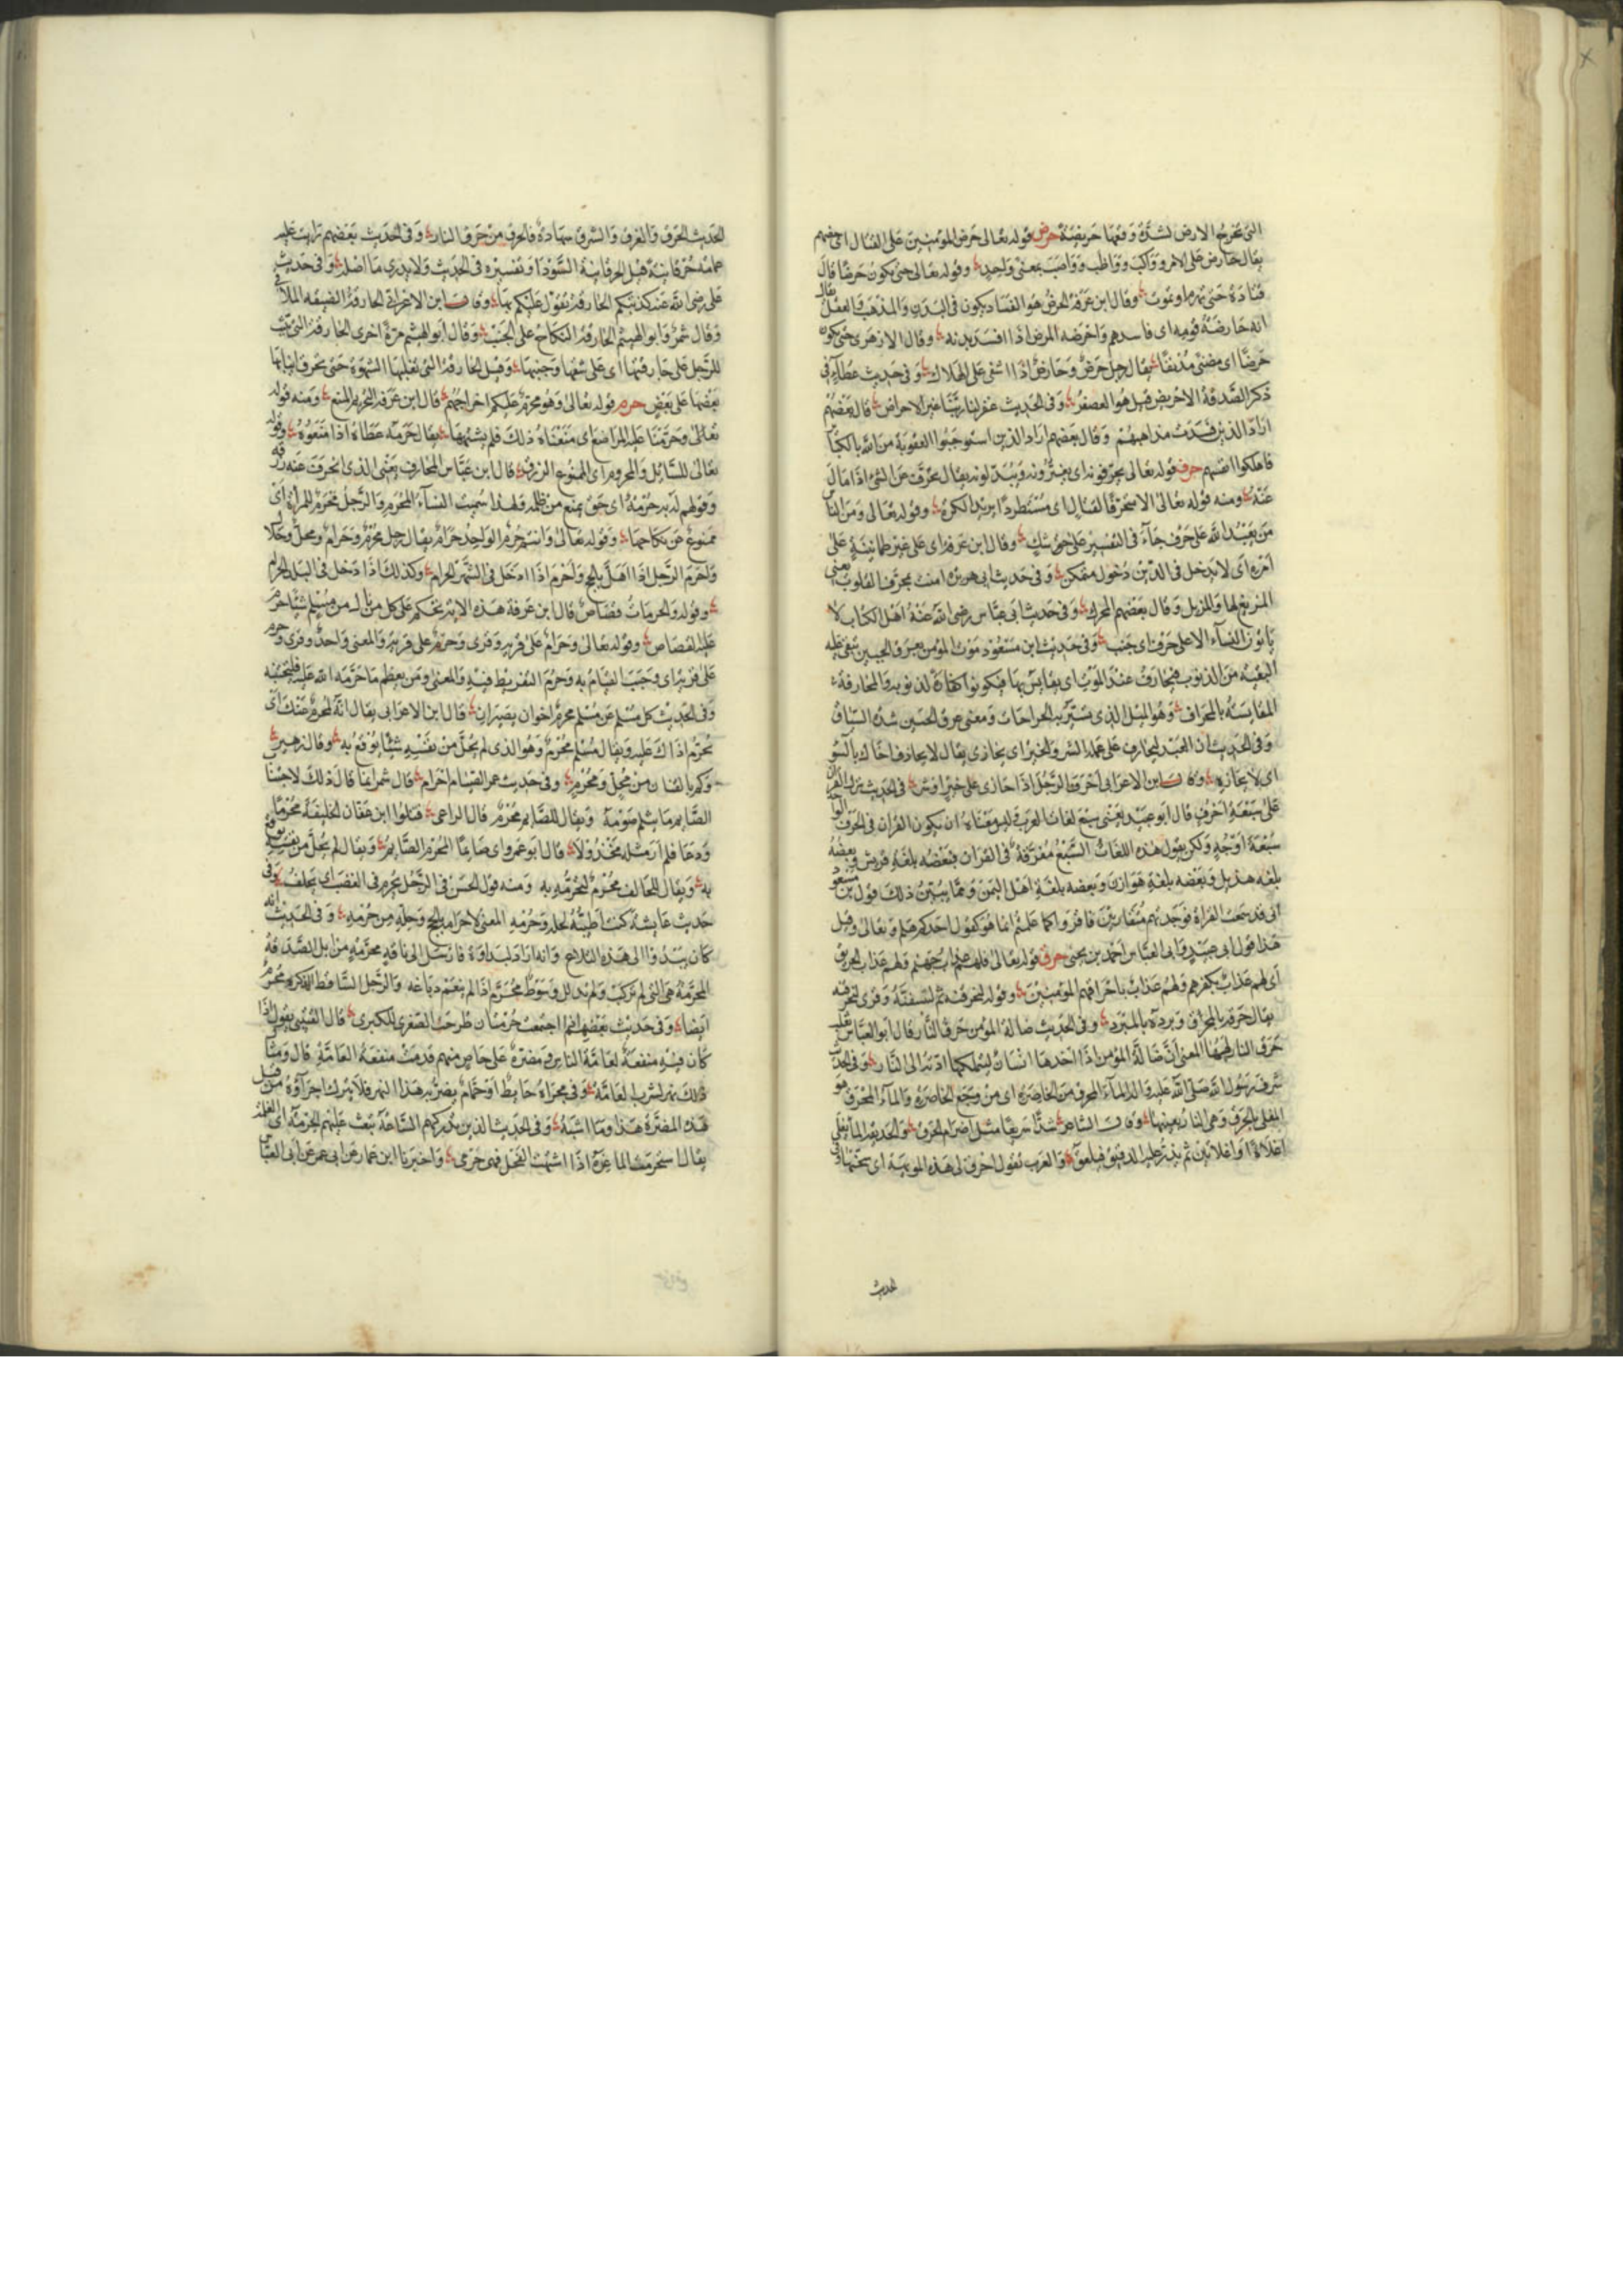 التى تخرج الارض لشدة وقعها حريصة حرض قوله تعالى حرض المؤمنين على القتال اى حضهم
يقال حارض على الامر وواكب وواظب وواصب بمعنى واحد وقوله تعالى حتى تكون حرضا قال
قتادة حتى تهرم او تموت وقال ابن عرفة الحرض هو الفساد يكون فى البدن والمذهب والعقل يقال
انه حارضة قومه اى فاسدهم واحرضه المرض اذا افسد بدنه وقال الازهرى حتى تكون
حرضا اى مضنى مدنفا يقال رجل حرض وحارض اذا اشفى على الهلاك وفى حديث عطاء فى
ذكر الصدقة الاحريض قيل هو العصفر وفى الحديث غفر لنا ربنا غير الاحراض قال بعضهم
اراد الذين فسدت مذاهبهم وقال بعضهم اراد الذين استوجبوا العقوبة من الله بالكبائر
فاهلكوا انفسهم حرف قوله تعالى يحرفونه اى يغيرونه ويبدلونه يقال تحرف عن الشئ اذا مال
عنه ومنه قوله تعالى الا متحرفا لقتال اى مستطردا يريد الكرة وقوله تعالى ومن الناس
من يعبد الله على حرف جاء فى التفسير على شك وقال ابن عرفة اى على غير طمانينة على
امره اى لا يدخل فى الدين دخول متمكن وفى حديث ابى هريرة امنت بمحرف القلوب يعنى
المزيغ لها والمزيل وقال بعضهم المحرك وفى حديث ابن عباس رضى الله عنه اهل الكتاب لا
ياتون النساء الا على حرف اى جنب وفى حديث ابن مسعود موت المؤمن بعرق الجبين تبقى عليه
البقية من الذنوب فيحارف عند الموت اى يقايس بها فيكون كفارة لذنوبه والمحارفة
المقايسة بالمحراف وهو الميل الذى تسبر به الجراحات ومعنى عرق الجبين شدة السياق
وفى الحديث ان العبد ليحارف على عمله الشر والخير اى يجازى يقال لا تحارف اخاك بالسوء
اى لا تجازه وقال ابن الاعرابى احرف الرجل اذا جازى على خير او شر فى الحديث نزل القران
على سبعة احرف قال ابو عبيد يعنى سبع لغات العرب وليس معناه ان يكون القران فى الحرف الواحد
سبعة اوجه ولكن يقول هذه اللغات السبع مفرقة فى القران فبعضه بلغة قريش وبعضه
بلغة هذيل وبعضه بلغة هوازن وبعضه بلغة اهل اليمن ومما يبين ذلك قول ابن مسعود
انى قد سمعت القراة فوجدتهم متقاربين فاقرؤا كما علمتم انما هو كقول احدكم هلم وتعالى وقيل
هذا قول ابى عبيد وابى العباس احمد بن يحيى حرق قوله تعالى فلهم عذاب جهنم ولهم عذاب الحريق
اى لهم عذاب بكفرهم ولهم عذاب باحراقهم المؤمنين وقوله لنحرقنه ثم لننسفنه وقرئ لنحرقنه
يقال حرقه بالمحراق وبرده بالمبرد وفى الحديث ضالة المؤمن حرق النار قال ابو العباس ثعلب
حرق النار لهبها المعنى ان ضالة المؤمن اذا اخذها انسان ليتملكها ادته الى النار وفى الحديث
شرب رسول الله صلى الله عليه واله الماء المحرق من الخاصرة اى من وجع الخاصرة والماء المحرق هو
المغلى بالحرق وهى النار بعينها وقال الشاعر شدا سريعا مثل اضرام الحرق والحديقة الماء يغلى
اغلاءة او اغلاءتين ثم يذر عليه الدقيق فيلعق والعرب تقول احرق لى هذه المويهة اى سخنها وفى
الحديث
الحديث الحرق والغرق والشرق شهادة فالحرق من حرق النار وفى الحديث بعضهم رايت عليه
عمامة حرقانية قيل الحرقانية السوداء وتفسيره فى الحديث ولا يدرى ما اصله وفى حديث
على رضى الله عنه كذبتكم الحارقة تقول عليكم بها وقال ابن الاعرابى الحارقة الضيقة الملاقى
وقال شمر وابو الهيثم الحارقة النكاح على الجنب وقال ابو الهيثم مرة اخرى الحارقة التى تثبت
للرجل على حارقتها اى على شقها وجنبها وقيل الحارقة التى تغلبها الشهوة حتى تحرق انيابها
بعضها على بعض حرم قوله تعالى وهو محرم عليكم اخراجهم قال ابن عرفة التحريم المنع ومنه قوله
تعالى وحرمنا عليه المراضع اى منعناه ذلك فلم يشتهها يقال حرمه عطاءه اذا منعوه وقوله
تعالى للسائل والمحروم اى الممنوع الرزق قال ابن عباس المحارف يعنى الذى انحرف عنه رزقه
وقولهم له به حرمة اى حق يمنع من ظلمه ولهذا سميت النساء الحرم والرجل محرم للمراة اى
ممنوع من نكاحها وقوله تعالى وانتم حرم الواحد حرام يقال رجل محرم وحرام ومحل وحلال
واحرم الرجل اذا اهل بالحج واحرم اذا دخل فى الشهر الحرام وكذلك اذا دخل فى البلد الحرام
وقوله والحرمات قصاص قال ابن عرفة هذه الاية تحكم على كل من نال من مسلم شيئا حرم
عليه القصاص وقوله تعالى وحرام على قرية وقرئ وحرم على قرية والمعنى واحد وقرئ وحرم
على قرية اى وجب القيام به وحرم التفريط فيه والمعنى ومن يعظم ما حرمه الله عليه فليجتنبه
وفى الحديث كل مسلم عن مسلم محرم اخوان نصيران قال ابن الاعرابى يقال انه لمحرم عنك اى
يحرم اذاك عليه ويقال مسلم محرم وهو الذى لم يحل من نفسه شيئا يوقع به وقال زهير
وكم بالقنان من محل ومحرم وفى حديث عمر الصيام احرام قال شمر انما قال ذلك لاجتناب
الصائم ما يثلم صومه ويقال للصائم محرم قال الراعى قتلوا ابن عفان الخليفة محرما
ودعا فلم ار مثله مخذولا قال ابو عمرو اى صائما المحرم الصائم ويقال لم يحل من نفسه يوقع
به ويقال للحالف محرم لتحرمه به ومنه قول الحسن فى الرجل يحرم فى الغضب اى يحلف وفى
حديث عائشة كنت اطيبه لحله وحرمه المعنى لاحرامه بالحج وحله من حرمه وفى الحديث انه
كان يبدوا الى هذه التلاع وانه اراد البداوة فارسل الى ناقة محرمة من ابل الصدقة
المحرمة هى التى لم تركب ولم تذلل وسوط محرم اذا لم ينعم دباغه والرجل الساقط الذكر محرم
ايضا وفى حديث بعضهم اذا اجتمعت حرمتان طرحت الصغرى للكبرى قال القتيبى يقول اذا
كان فيه منفعة لعامة الناس ومضرة على خاص منهم قدمت منفعة العامة قال ومثال
ذلك نهر لشرب العامة وفى مجراه حائط او حمام يضر به هذا النهر فلا يترك اجراؤه من قبل
هذه المضرة هذا وما اشبهه وفى الحديث الذين تدركهم الساعة تبعث عليهم الحرمة اى الغلمة
يقال استحرمت الماعزة اذا اشتهت الفحل فهى حرمى واخبرنا ابن عمار عن ابى عمر عن ابى العباس